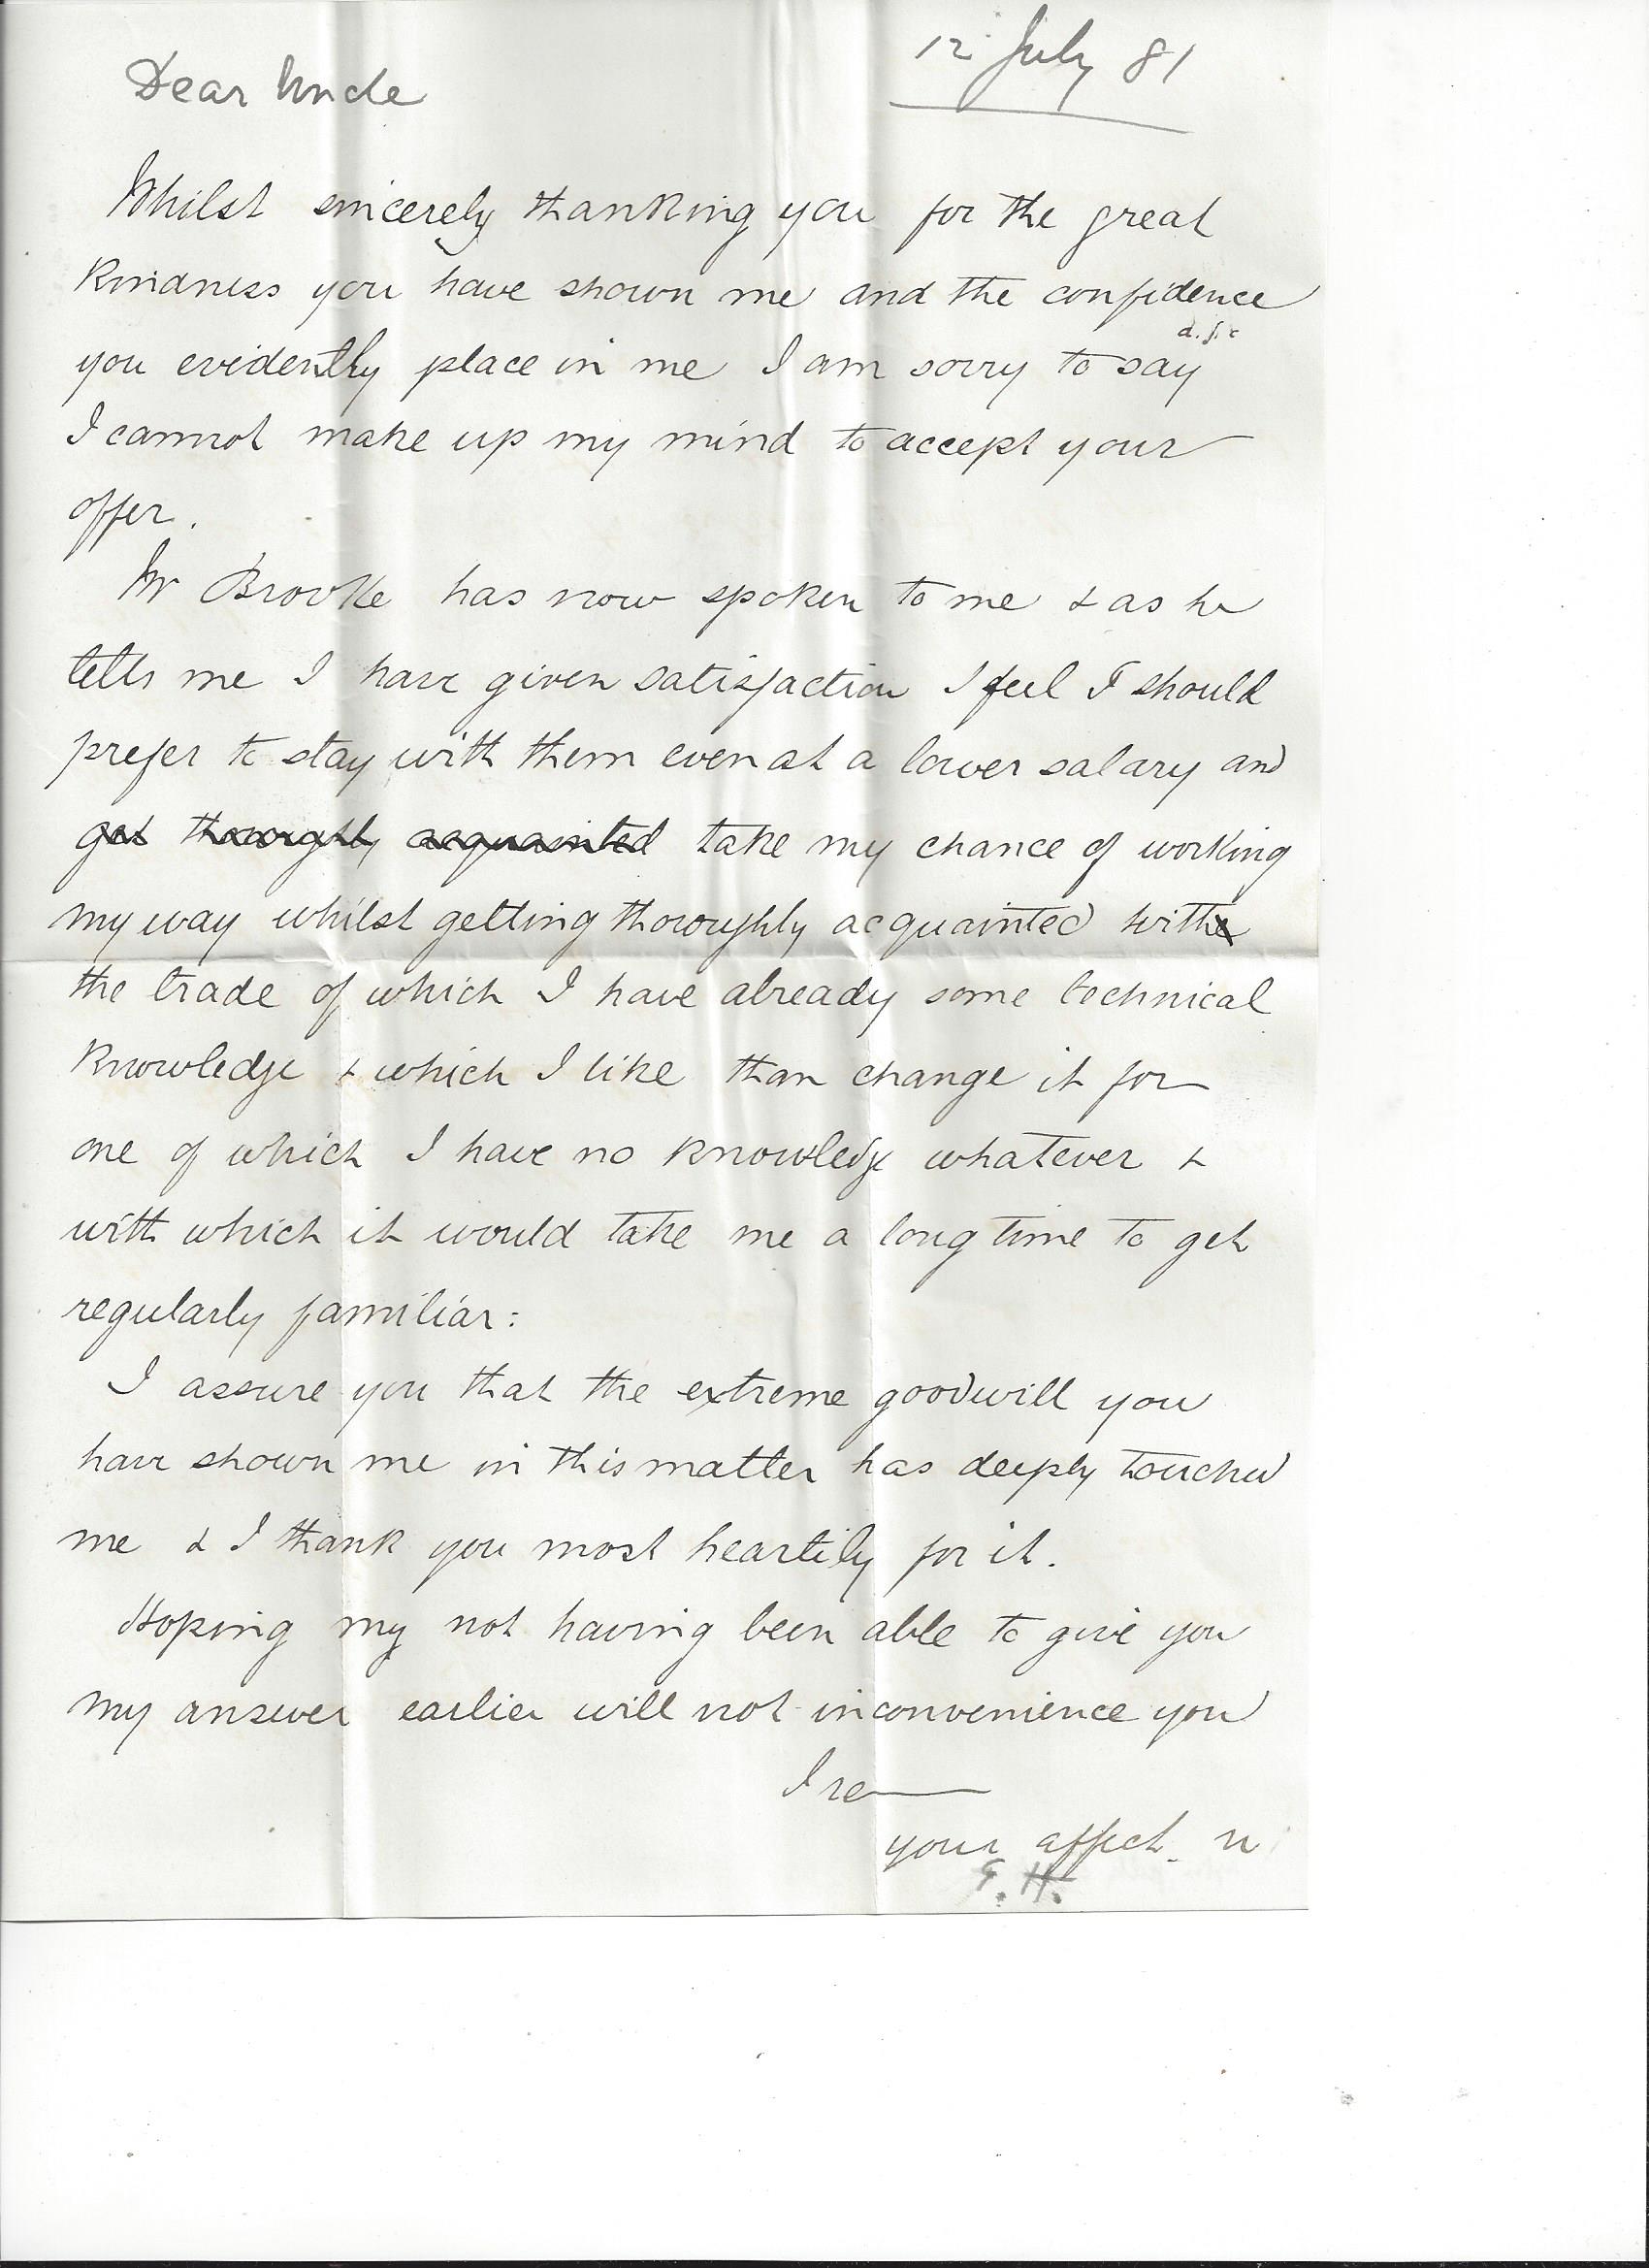 12 July 81
Dear Uncle
Whilst sincerely thanking you for the great
kindness you have shown me and the confidence
you evidently place in me I am sorry to say
I cannot make up my mind to accept your
offer.
Mr Brooke has now spoken to me & as he
tells me I have given satisfaction I feel I should
prefer to stay with them even at a lower salary and
get thoroughly acquainted take my chance of working
my way whilst getting thoroughly acquainted with
the trade of which I have already some technical
knowledge & which I like than change it for
one of which I have no knowledge whatever &
with which it would take me a long time to get
regularly familiar:
I assure you that the extreme goodwill you
have shown me in this matter has deeply touched
me & I thank you most heartily for it.
Hoping my not having been able to give you
my answer earlier will not inconvenience you
I re
your affect. n
G. H.